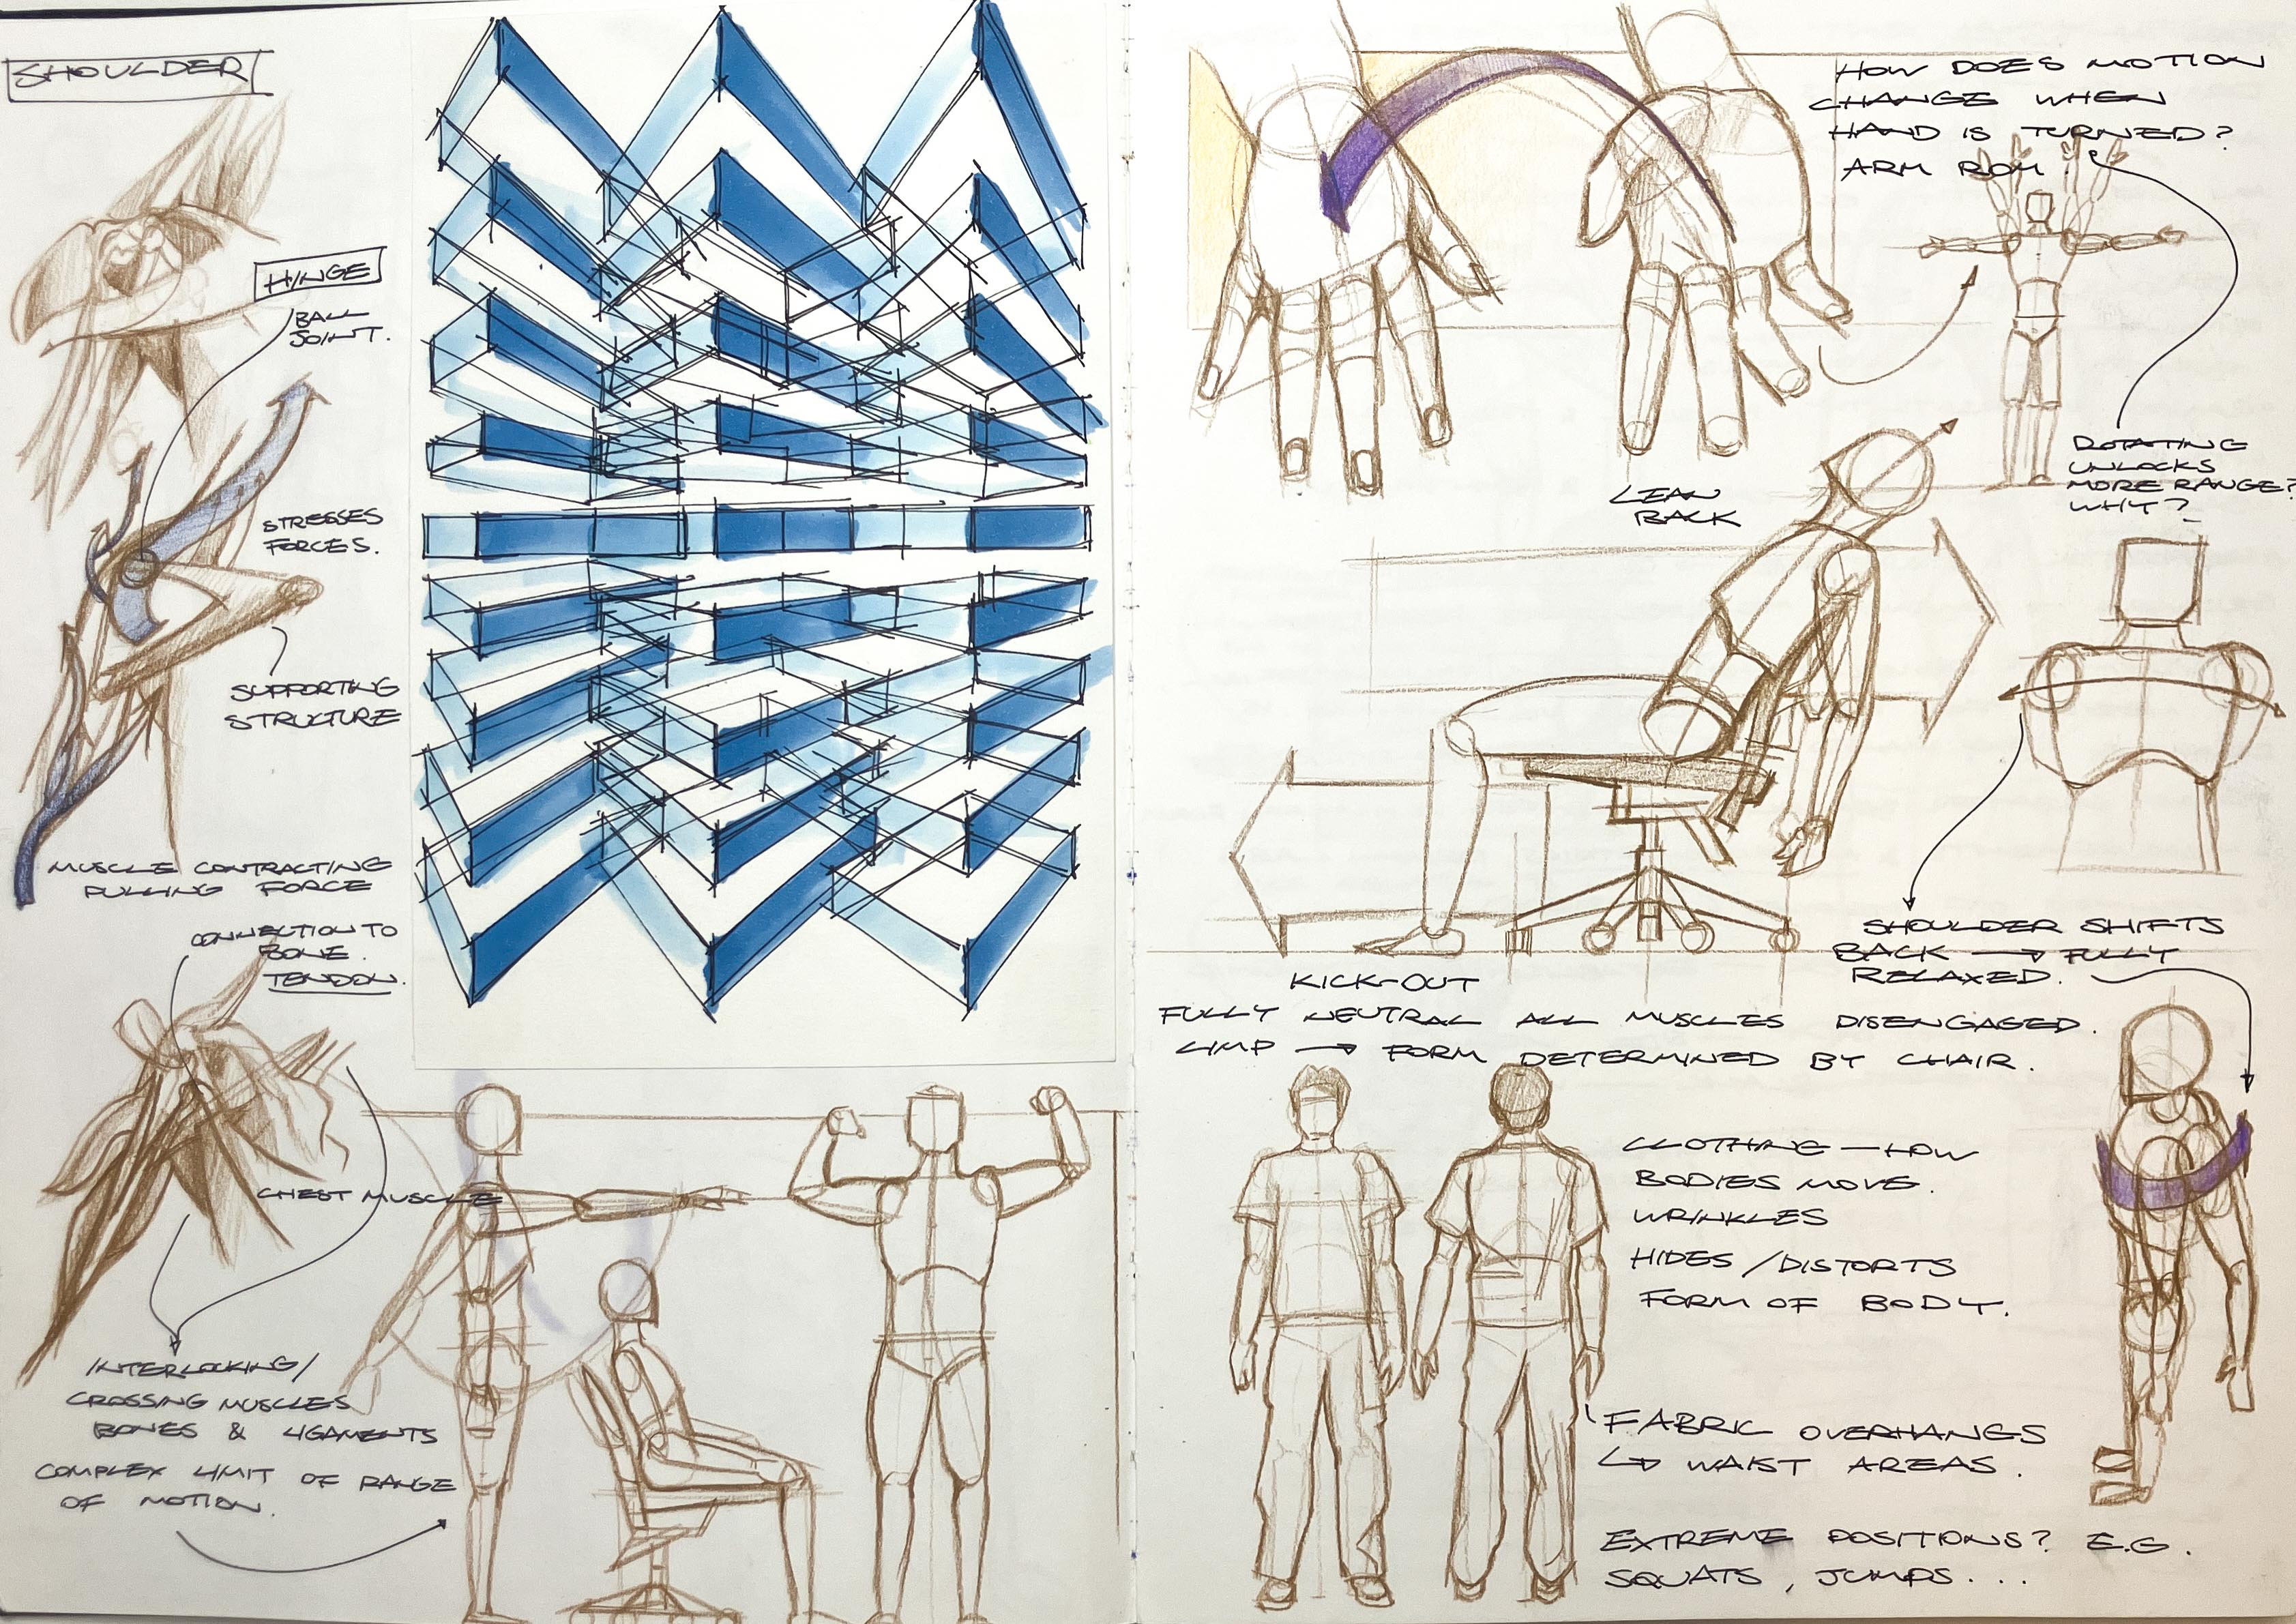 SHOULDER
HINGE
BALL
JOINT.
STRESSES
FORCES.
SUPPORTING
STRUCTURE
MUSCLE CONTRACTING
PULLING FORCE
CONNECTION TO
BONE.
TENDON.
CHEST MUSCLE
INTERLOCKING/
CROSSING MUSCLES
BONES & LIGAMENTS
COMPLEX LIMIT OF RANGE
OF MOTION.
HOW DOES MOTION
CHANGE WHEN
HAND IS TURNED?
ARM ROM.
ROTATING
UNLOCKS
MORE RANGE?
WHY?
LEAN
BACK
SHOULDER SHIFTS
BACK → FULLY
RELAXED.
KICK-OUT
FULLY NEUTRAL ALL MUSCLES DISENGAGED.
LIMP → FORM DETERMINED BY CHAIR.
CLOTHING — HOW
BODIES MOVE.
WRINKLES
HIDES / DISTORTS
FORM OF BODY.
FABRIC OVERHANGS
↳ WAIST AREAS.
EXTREME POSITIONS? E.G.
SQUATS, JUMPS...